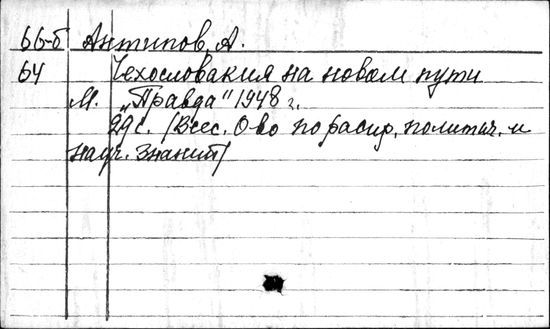 66-5 Антипов, А.
64 Чехословакия на новом пути
М. „Правда" 1948 г.
29 с. (Всес. О-во по распр. политич. и
науч. знаний)